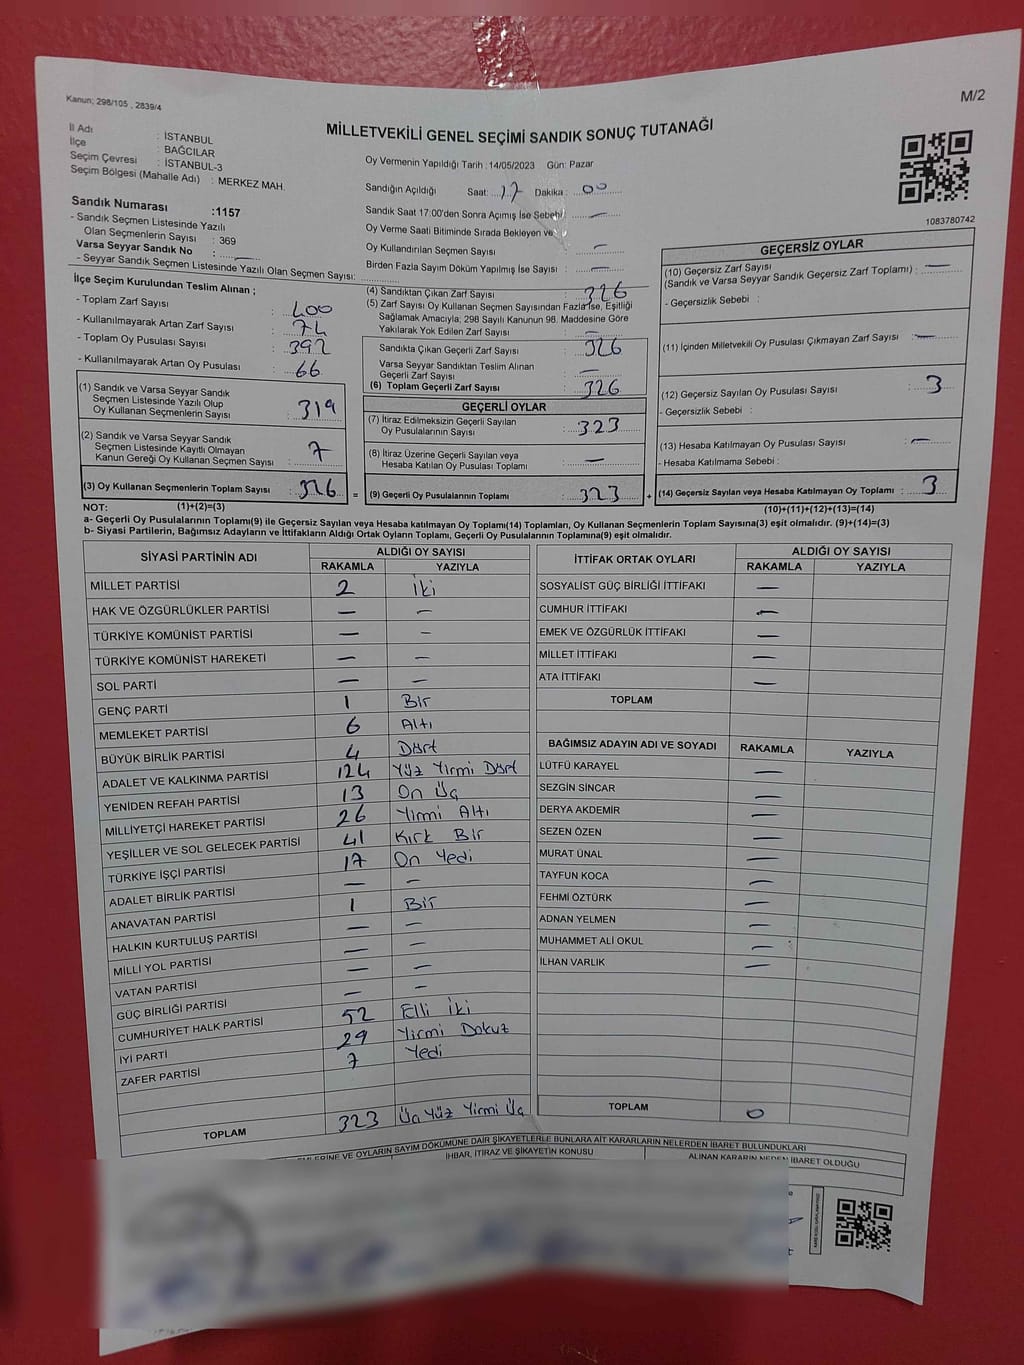 Kanun; 298/105 , 2839/4
M/2
MİLLETVEKİLİ GENEL SEÇİMİ SANDIK SONUÇ TUTANAĞI
İl Adı : İSTANBUL
İlçe : BAĞCILAR
Seçim Çevresi : İSTANBUL-3
Seçim Bölgesi (Mahalle Adı) : MERKEZ MAH.
Oy Vermenin Yapıldığı Tarih : 14/05/2023 Gün: Pazar
Sandığın Açıldığı Saat: 17 Dakika : 00
Sandık Saat 17:00'den Sonra Açımış İse Sebebi: —
Oy Verme Saati Bitiminde Sırada Bekleyen ve
Oy Kullandırılan Seçmen Sayısı —
Birden Fazla Sayım Döküm Yapılmış İse Sayısı : —
1083780742
Sandık Numarası :1157
- Sandık Seçmen Listesinde Yazılı
Olan Seçmenlerin Sayısı : 369
Varsa Seyyar Sandık No : —
- Seyyar Sandık Seçmen Listesinde Yazılı Olan Seçmen Sayısı:
İlçe Seçim Kurulundan Teslim Alınan ;
- Toplam Zarf Sayısı : 400
- Kullanılmayarak Artan Zarf Sayısı : 74
- Toplam Oy Pusulası Sayısı : 392
- Kullanılmayarak Artan Oy Pusulası : 66
(1) Sandık ve Varsa Seyyar Sandık
Seçmen Listesinde Yazılı Olup
Oy Kullanan Seçmenlerin Sayısı : 319
(2) Sandık ve Varsa Seyyar Sandık
Seçmen Listesinde Kayıtlı Olmayan
Kanun Gereği Oy Kullanan Seçmen Sayısı : 7
(3) Oy Kullanan Seçmenlerin Toplam Sayısı : 326
(4) Sandıktan Çıkan Zarf Sayısı : 326
(5) Zarf Sayısı Oy Kullanan Seçmen Sayısından Fazla İse, Eşitliği
Sağlamak Amacıyla; 298 Sayılı Kanunun 98. Maddesine Göre
Yakılarak Yok Edilen Zarf Sayısı : —
Sandıkta Çıkan Geçerli Zarf Sayısı : 326
Varsa Seyyar Sandıktan Teslim Alınan
Geçerli Zarf Sayısı : —
(6) Toplam Geçerli Zarf Sayısı : 326
GEÇERLİ OYLAR
(7) İtiraz Edilmeksizin Geçerli Sayılan
Oy Pusulalarının Sayısı : 323
(8) İtiraz Üzerine Geçerli Sayılan veya
Hesaba Katılan Oy Pusulası Toplamı : —
= (9) Geçerli Oy Pusulalarının Toplamı : 323
GEÇERSİZ OYLAR
(10) Geçersiz Zarf Sayısı
(Sandık ve Varsa Seyyar Sandık Geçersiz Zarf Toplamı) : —
- Geçersizlik Sebebi :
(11) İçinden Milletvekili Oy Pusulası Çıkmayan Zarf Sayısı : —
(12) Geçersiz Sayılan Oy Pusulası Sayısı : 3
- Geçersizlik Sebebi :
(13) Hesaba Katılmayan Oy Pusulası Sayısı : —
- Hesaba Katılmama Sebebi :
+ (14) Geçersiz Sayılan veya Hesaba Katılmayan Oy Toplamı : 3
NOT: (1)+(2)=(3)
(10)+(11)+(12)+(13)=(14)
a- Geçerli Oy Pusulalarının Toplamı(9) ile Geçersiz Sayılan veya Hesaba katılmayan Oy Toplamı(14) Toplamları, Oy Kullanan Seçmenlerin Toplam Sayısına(3) eşit olmalıdır. (9)+(14)=(3)
b- Siyasi Partilerin, Bağımsız Adayların ve İttifakların Aldığı Ortak Oyların Toplamı, Geçerli Oy Pusulalarının Toplamına(9) eşit olmalıdır.
SİYASİ PARTİNİN ADI ALDIĞI OY SAYISI
RAKAMLA YAZIYLA
MİLLET PARTİSİ 2 İki
HAK VE ÖZGÜRLÜKLER PARTİSİ — —
TÜRKİYE KOMÜNİST PARTİSİ — —
TÜRKİYE KOMÜNİST HAREKETİ — —
SOL PARTİ — —
GENÇ PARTİ 1 Bir
MEMLEKET PARTİSİ 6 Altı
BÜYÜK BİRLİK PARTİSİ 4 Dört
ADALET VE KALKINMA PARTİSİ 124 Yüz Yirmi Dört
YENİDEN REFAH PARTİSİ 13 On Üç
MİLLİYETÇİ HAREKET PARTİSİ 26 Yirmi Altı
YEŞİLLER VE SOL GELECEK PARTİSİ 41 Kırk Bir
TÜRKİYE İŞÇİ PARTİSİ 17 On Yedi
ADALET BİRLİK PARTİSİ — —
ANAVATAN PARTİSİ 1 Bir
HALKIN KURTULUŞ PARTİSİ — —
MİLLİ YOL PARTİSİ — —
VATAN PARTİSİ — —
GÜÇ BİRLİĞİ PARTİSİ — —
CUMHURİYET HALK PARTİSİ 52 Elli İki
İYİ PARTİ 29 Yirmi Dokuz
ZAFER PARTİSİ 7 Yedi
TOPLAM 323 Üç Yüz Yirmi Üç
İTTİFAK ORTAK OYLARI ALDIĞI OY SAYISI
RAKAMLA YAZIYLA
SOSYALİST GÜÇ BİRLİĞİ İTTİFAKI —
CUMHUR İTTİFAKI —
EMEK VE ÖZGÜRLÜK İTTİFAKI —
MİLLET İTTİFAKI —
ATA İTTİFAKI —
TOPLAM
BAĞIMSIZ ADAYIN ADI VE SOYADI RAKAMLA YAZIYLA
LÜTFÜ KARAYEL —
SEZGİN SİNCAR —
DERYA AKDEMİR —
SEZEN ÖZEN —
MURAT ÜNAL —
TAYFUN KOCA —
FEHMİ ÖZTÜRK —
ADNAN YELMEN —
MUHAMMET ALİ OKUL —
İLHAN VARLIK —
TOPLAM 0
VE OYLARIN SAYIM DÖKÜMÜNE DAİR ŞİKAYETLERLE BUNLARA AİT KARARLARIN NELERDEN İBARET BULUNDUKLARI
İHBAR, İTİRAZ VE ŞİKAYETİN KONUSU
ALINAN KARARIN NEDEN İBARET OLDUĞU